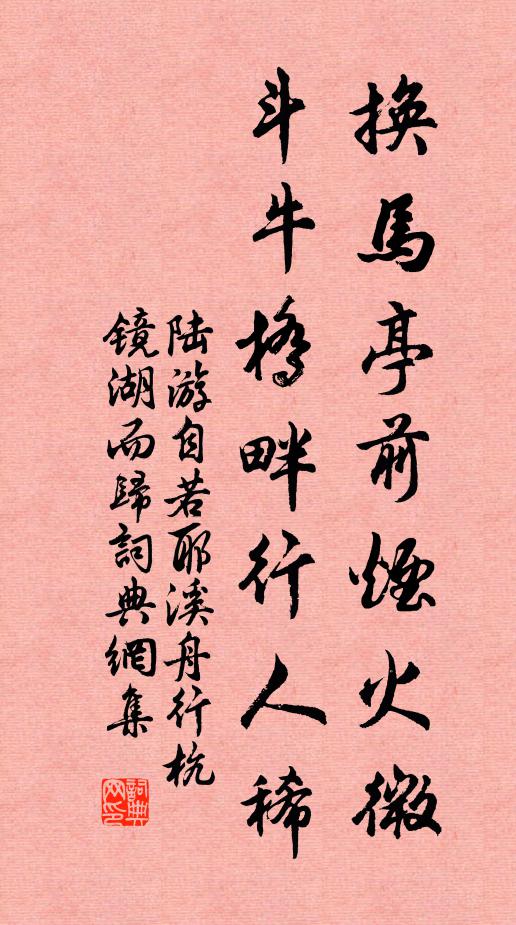 換馬亭前煙火微
斗牛橋畔行人稀
陆游自若耶溪舟行杭
镜湖而歸詞典網集
詞典网印